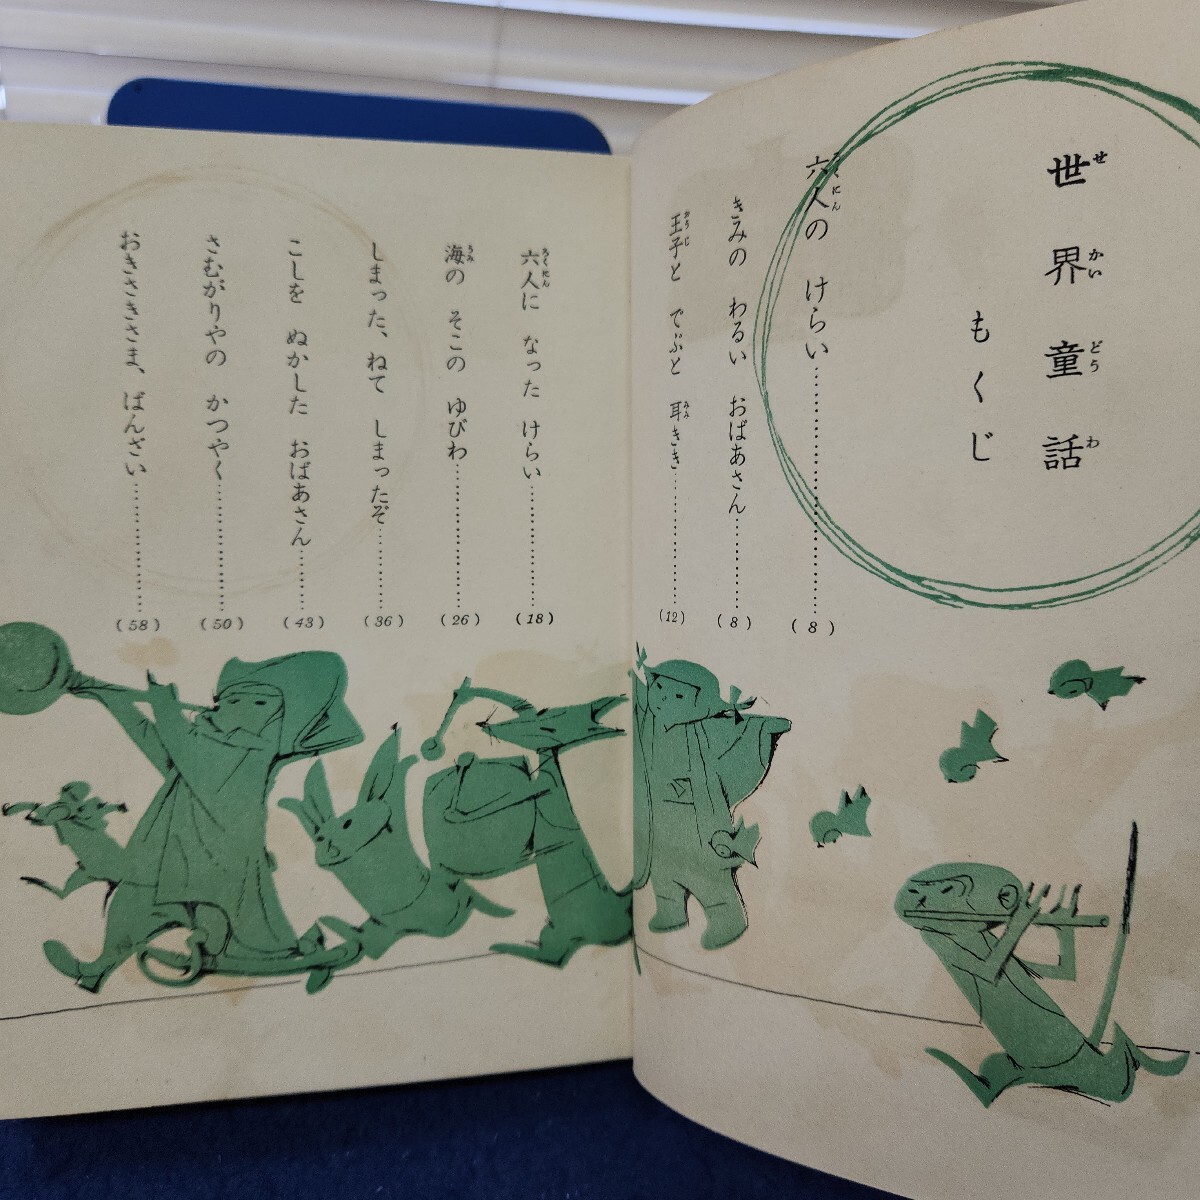 世界童話
もくじ
六人の けらい…………………(8)
きみの わるい おばあさん…………(8)
王子と でぶと 耳きき…………………(12)
六人に なった けらい…………………(18)
海の そこの ゆびわ…………………(26)
しまった、ねて しまったぞ…………(36)
こしを ぬかした おばあさん…………(43)
さむがりやの かつやく…………………(50)
おきさきさま、ばんざい…………………(58)